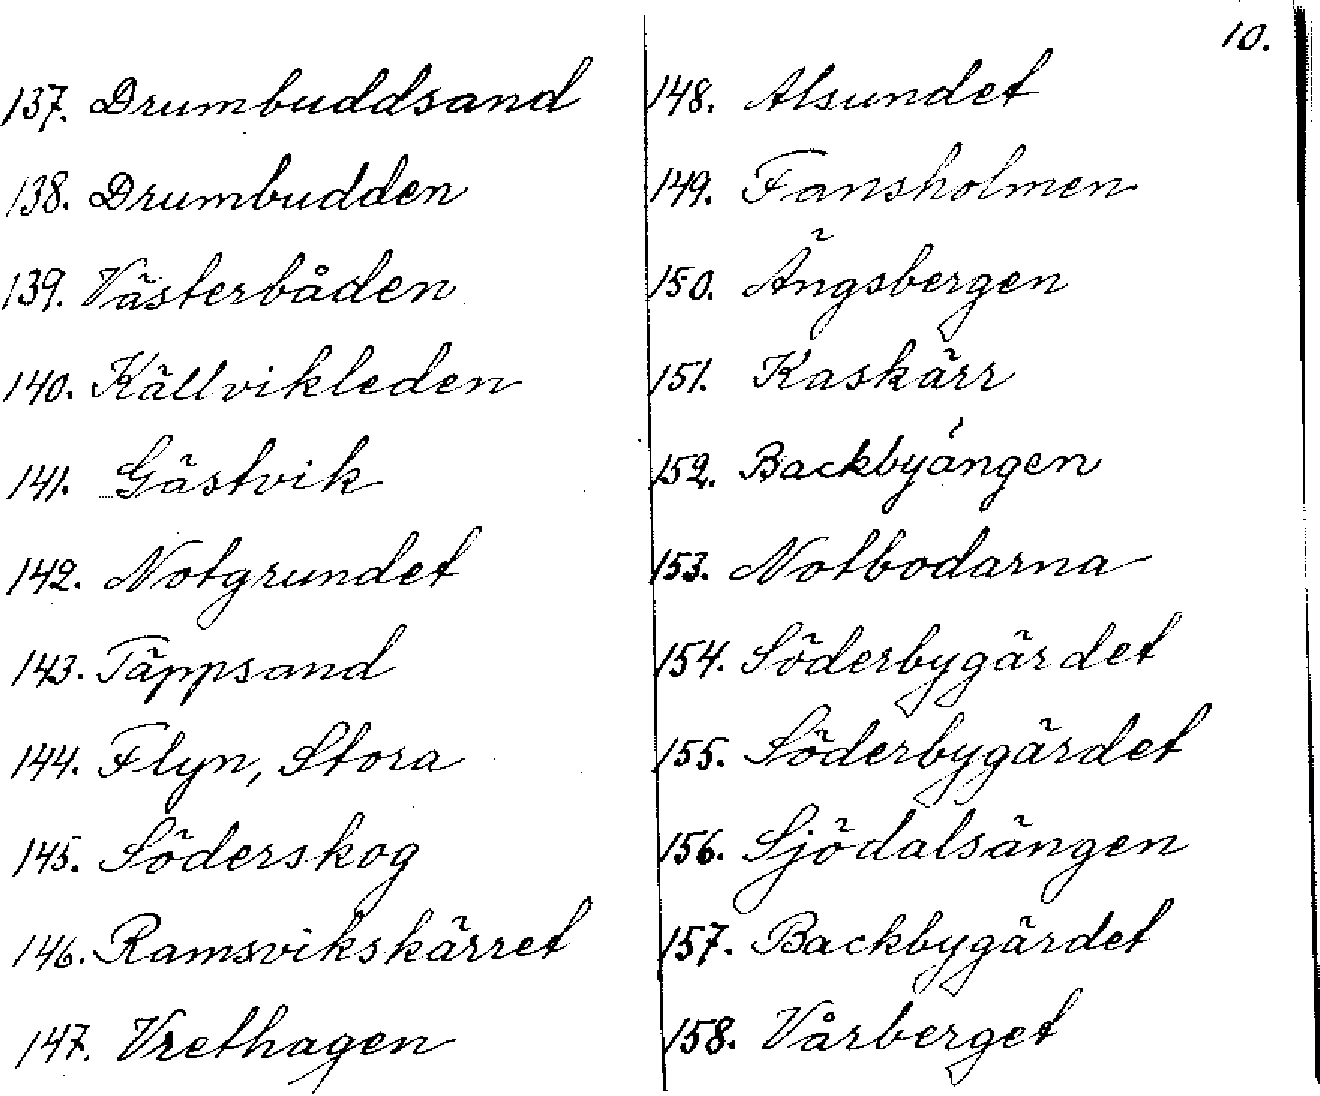 10.
137. Drumbuddsand
138. Drumbudden
139. Västerbåden
140. Källvikleden
141. Gästvik
142. Notgrundet
143. Täppsand
144. Flyn, Stora
145. Söderskog
146. Ramsvikskärret
147. Vrethagen
148. Alsundet
149. Fansholmen
150. Ängsbergen
151. Kaskärr
152. Backbyängen
153. Notbodarna
154. Söderbygärdet
155. Söderbygärdet
156. Sjödalsängen
157. Backbygärdet
158. Vårberget